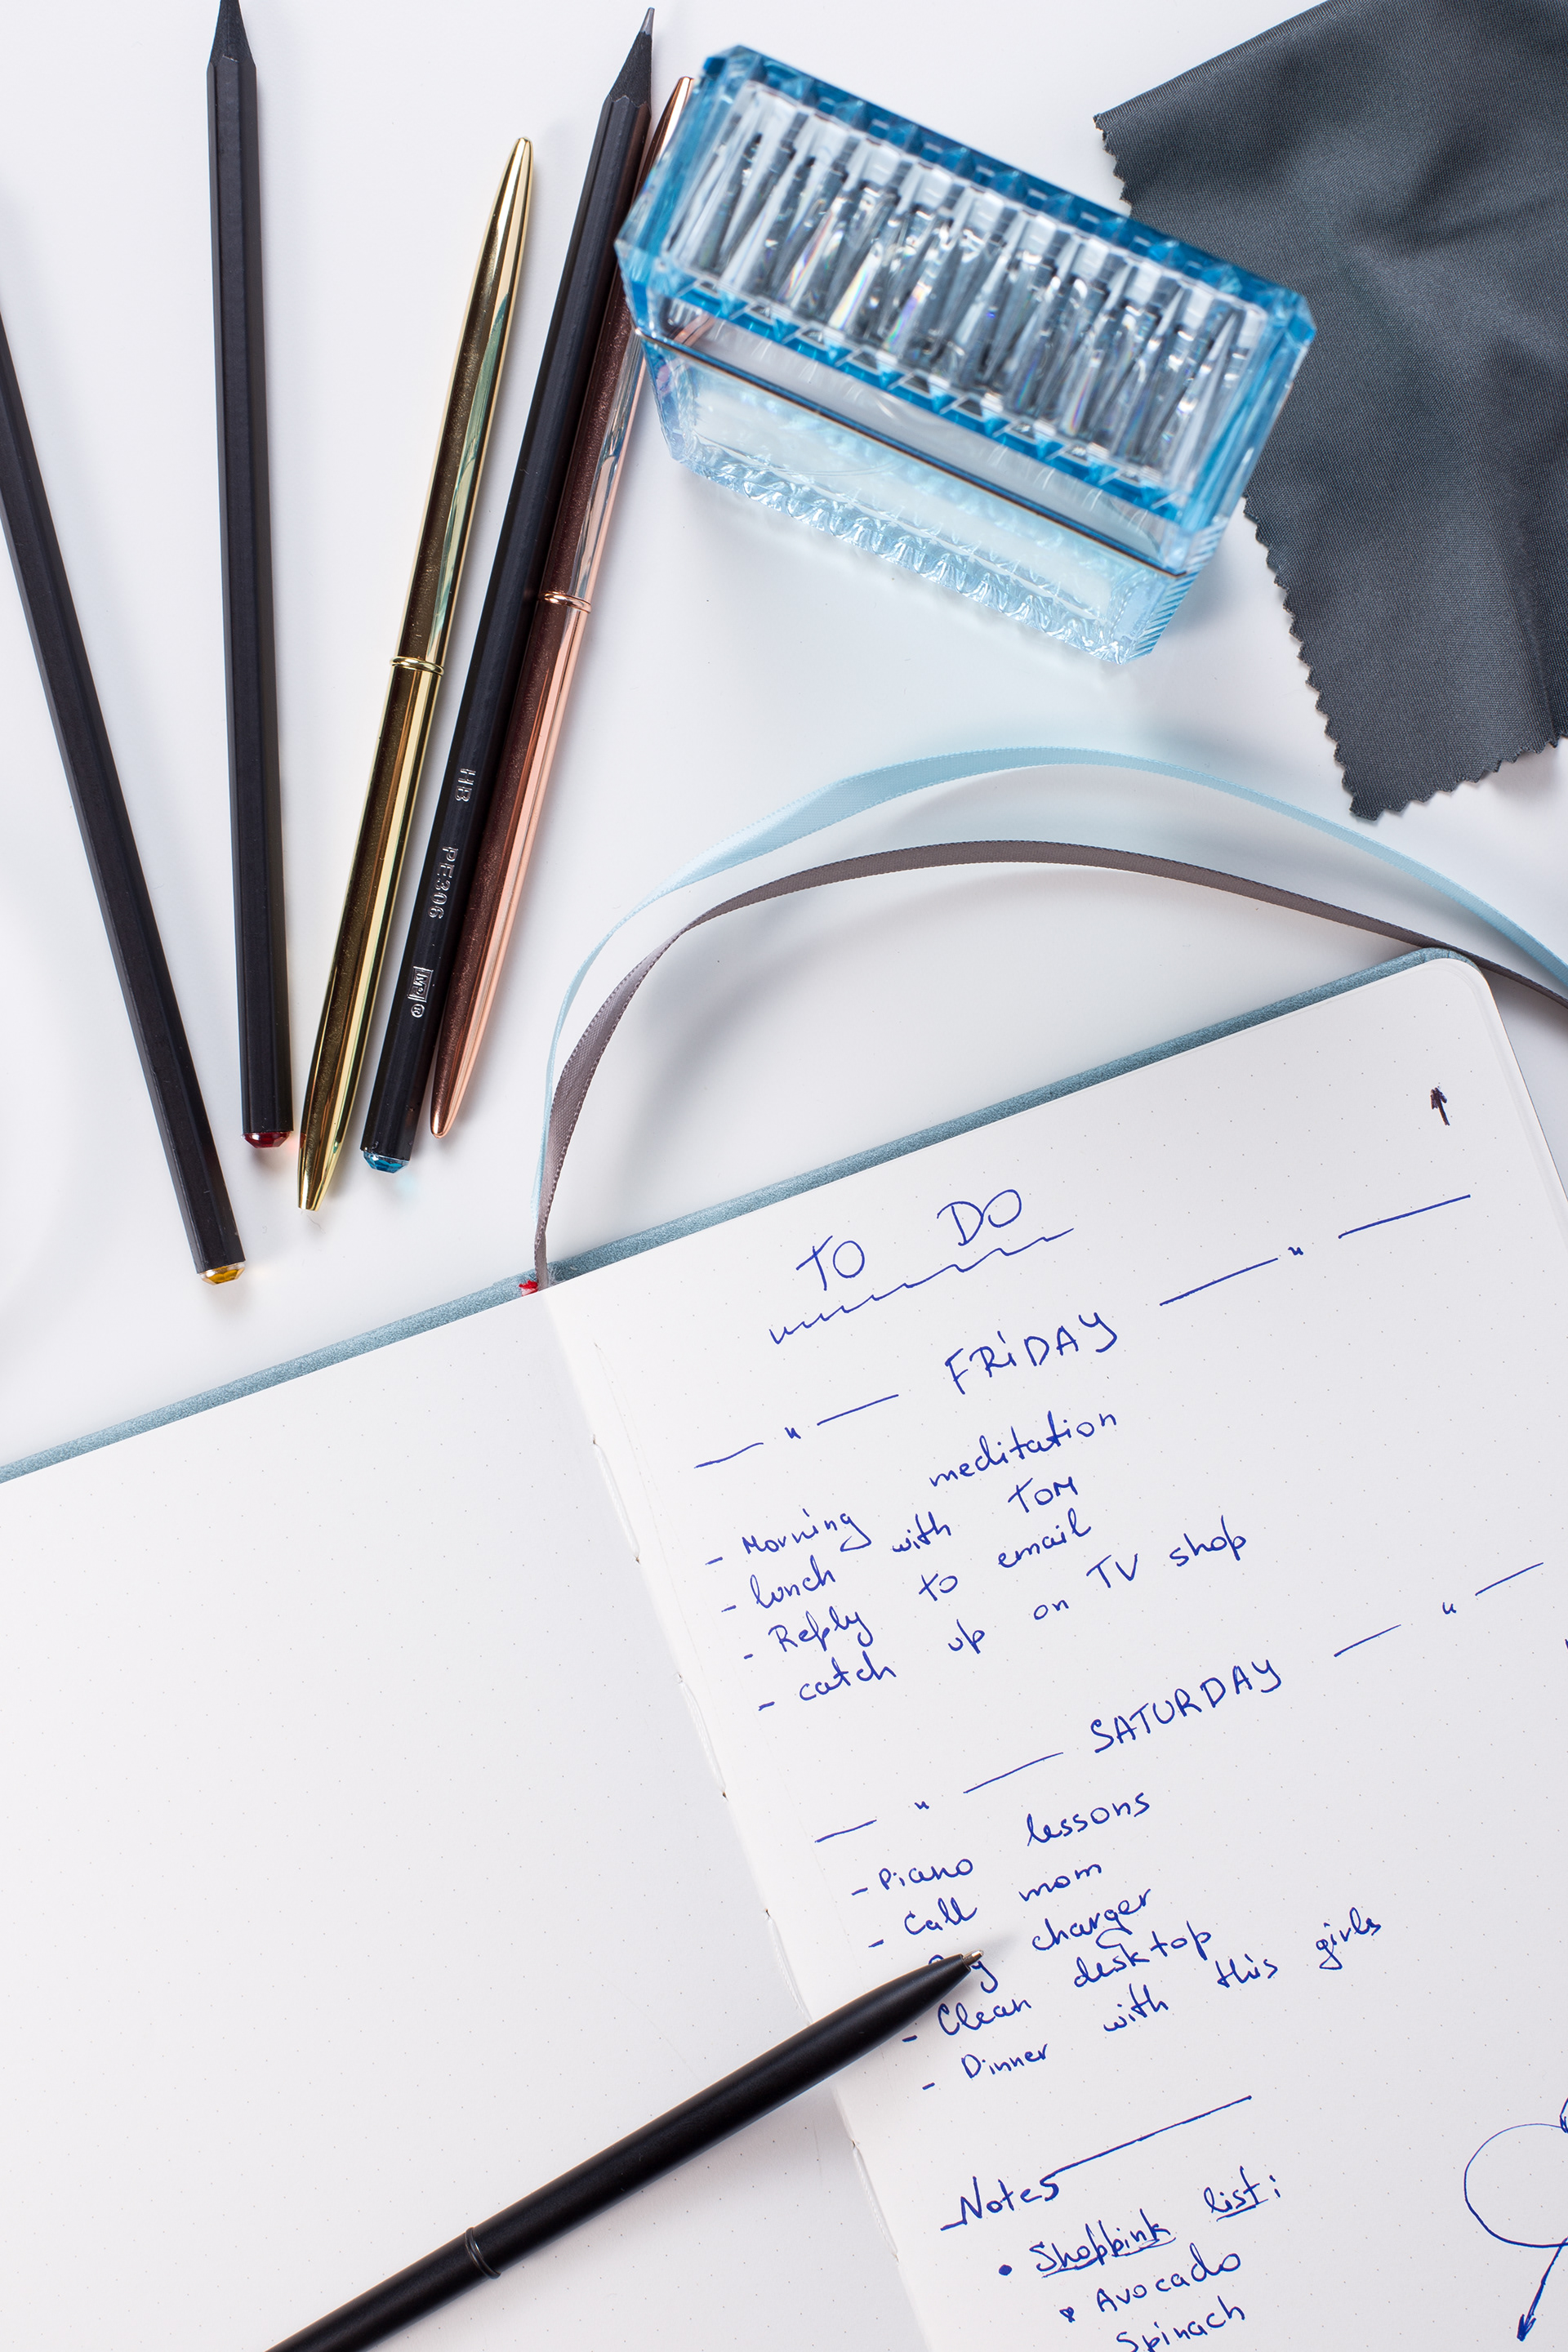 HB PE306
TO DO
FRIDAY
- Morning meditation
- lunch with TOM
- Reply to email
- catch up on TV shop
SATURDAY
- Piano lessons
- Call mom
charger
- Clean desktop
- Dinner with this girls
Notes
• Shoppink list:
• Avocado
Spinach